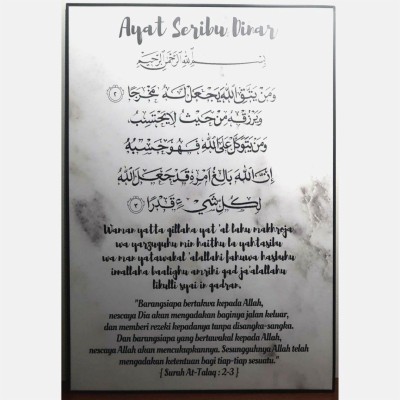 Ayat Seribu Dinar
بسم الله الرحمن الرحيم
وَمَن يَتَّقِ اللَّهَ يَجْعَل لَّهُ مَخْرَجًا ٢
وَيَرْزُقْهُ مِنْ حَيْثُ لَا يَحْتَسِبُ
وَمَن يَتَوَكَّلْ عَلَى اللَّهِ فَهُوَ حَسْبُهُ
إِنَّ اللَّهَ بَالِغُ أَمْرِهِ قَدْ جَعَلَ اللَّهُ
لِكُلِّ شَيْءٍ قَدْرًا ٣
Waman yatta qillaha yat 'al lahu makhroja
wa yarzuquhu min haithu la yahtasibu
wa man yatawakal 'alallahi fahuwa hasbuhu
innallaha baalighu amrihi qad ja'alallahu
likulli syai in qadran.
"Barangsiapa bertakwa kepada Allah,
nescaya Dia akan mengadakan baginya jalan keluar,
dan memberi rezeki kepadanya tanpa disangka-sangka.
Dan barangsiapa yang bertawakal kepada Allah,
nescaya Allah akan mencukupkannya. Sesungguhnya Allah telah
mengadakan ketentuan bagi tiap-tiap sesuatu."
{ Surah At-Talaq : 2-3 }